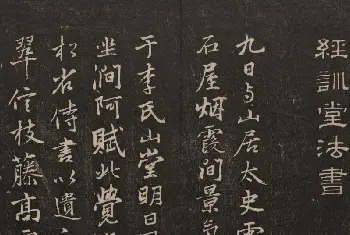 經訓堂法書
九日与山居太史雲
石屋烟霞洞景氣
于李氏山堂明日
坐澗阿賦此覺
松省侍書以遺
翠信枝藤高